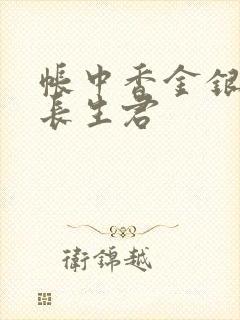 帳中香金銀
長生君
衛錦越